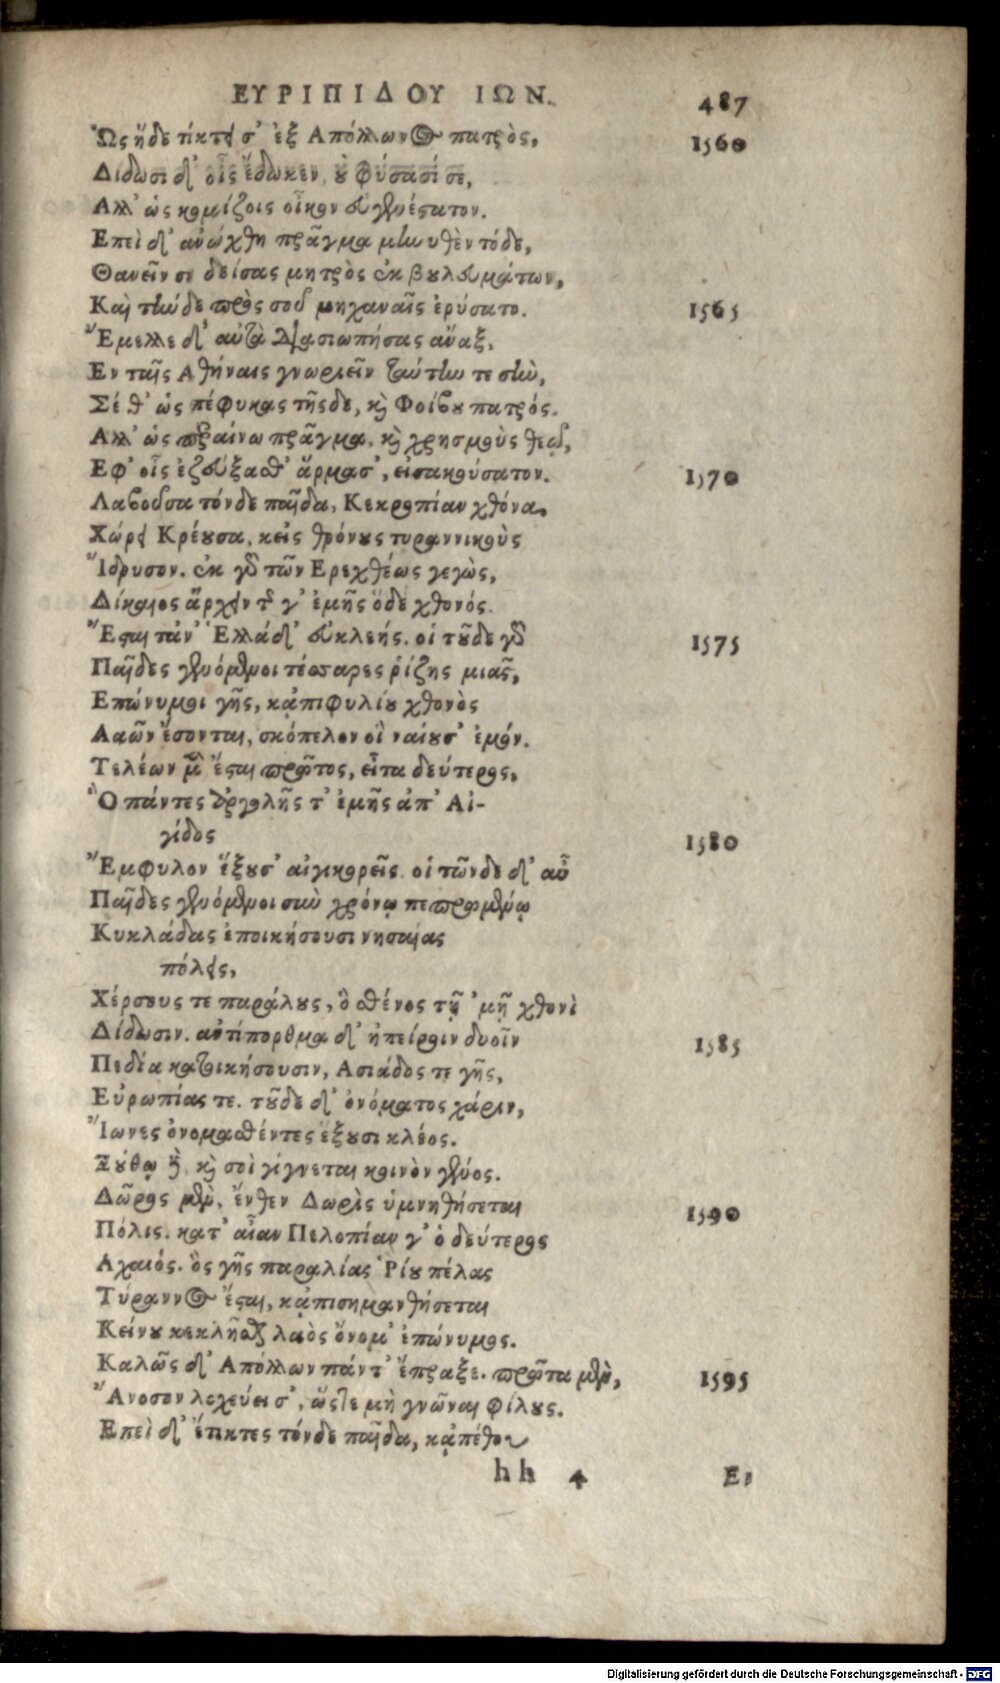 ΕΥΡΙΠΙΔΟΥ ΙΩΝ.
487
Ὡς ἥδε τίκτει σ' ἐξ Απόλλωνος πατρὸς, 1560
Δίδωσι δ' οἷς ἔδωκεν, οὐ φύσασί σε,
Αλλ' ὡς κομίζοις οἶκον εὐγενέστατον.
Επεὶ δ' ἀνεώχθη πρᾶγμα μηνυθὲν τόδε,
Θανεῖν σε δείσας μητρὸς ἐκ βουλευμάτων,
Καὶ τήνδε πρὸς σοῦ μηχαναῖς ἐρύσατο. 1565
Ἔμελλε δ' αὐτὰ διασιωπήσας ἄναξ,
Εν ταῖς Αθήναις γνωριεῖν ταύτην τε σὴν,
Σέ θ' ὡς πέφυκας τῆςδε, καὶ Φοίβου πατρός.
Αλλ' ὡς περαίνω πρᾶγμα, καὶ χρησμοὺς θεοῦ,
Εφ' οἷς ἔζευξα θ' ἅρμασ', εἰσακούσατον. 1570
Λαβοῦσα τόνδε παῖδα, Κεκροπίαν χθόνα,
Χώρει Κρέουσα, κεἰς θρόνους τυραννικοὺς
Ἵδρυσον. ἐκ γὰρ τῶν Ερεχθέως γεγὼς,
Δίκαιος ἄρχειν τῆς γ' ἐμῆς ὅδε χθονός.
Ἔσται τἀν' Ἑλλάδ' εὐκλεής. οἱ τοῦδε γὰρ 1575
Παῖδες γενόμενοι τέσσαρες ῥίζης μιᾶς,
Επώνυμοι γῆς, κἀπιφυλίου χθονὸς
Λαῶν ἔσονται, σκόπελον οἳ ναίουσ' ἐμόν.
Τελέων μὲν ἔσται πρῶτος, εἶτα δεύτερος,
Ὃ πάντες ἀργαλῆς τ' ἐμῆς ἀπ' Αἰ-
γίδος 1580
Ἔμφυλον ἕξουσ' αἰγικορεῖς. οἱ τῶνδε δ' αὖ
Παῖδες γενόμενοι σὺν χρόνῳ πεπρωμένῳ
Κυκλάδας ἐποικήσουσι νησαίας
πόλεις,
Χέρσους τε παράλους, ὃ σθένος τῇ 'μῇ χθονὶ
Δίδωσιν. ἀντίπορθμα δ' ἠπείροιν δυοῖν 1585
Πεδία κατοικήσουσιν, Ασιάδος τε γῆς,
Εὐρωπίας τε. τοῦδε δ' ὀνόματος χάριν,
Ἴωνες ὀνομασθέντες ἕξουσι κλέος.
Ξούθῳ δὲ καὶ σοὶ γίγνεται κοινὸν γένος.
Δῶρος μὲν, ἔνθεν Δωρὶς ὑμνηθήσεται 1590
Πόλις. κατ' αἶαν Πελοπίαν γ' ὁ δεύτερος
Αχαιός. ὃς γῆς παραλίας Ῥίου πέλας
Τύραννος ἔσται, κἀπισημανθήσεται
Κείνου κεκλῆσθαι λαὸς ὄνομ' ἐπώνυμος.
Καλῶς δ' Απόλλων πάντ' ἔπραξε. πρῶτα μὲν, 1595
Ἄνοσον λοχεύει σ', ὥστε μὴ γνῶναι φίλους.
Επεὶ δ' ἔτικτες τόνδε παῖδα, κἀπέθου
hh 4 Ε;
Digitalisierung gefördert durch die Deutsche Forschungsgemeinschaft - DFG